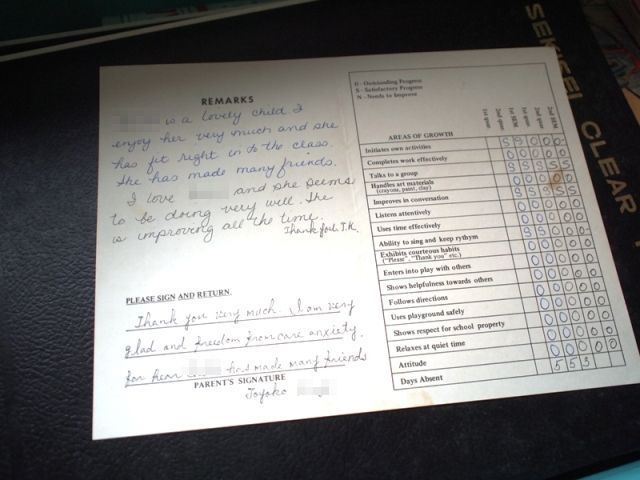 SEKISEI CLEAR
REMARKS
is a lovely child. I
enjoy her very much and she
has fit right in to the class.
She has made many friends.
I love and she seems
to be doing very well. She
is improving all the time.
PLEASE SIGN AND RETURN.
Thank you very much. I am very
glad and freedom from care anxiety.
for hear has made many friends
PARENT'S SIGNATURE
Toyoko
O - Outstanding Progress
S - Satisfactory Progress
N - Needs to Improve
AREAS OF GROWTH
1st quar.
1st SEM
2nd SEM
Initiates own activities
Completes work effectively
Talks to a group
Handles art materials
(crayons, paint, clay)
Improves in conversation
Listens attentively
Uses time effectively
Ability to sing and keep rythym
Exhibits courteous habits
("Please", "Thank you" etc.)
Enters into play with others
Shows helpfulness towards others
Follows directions
Uses playground safely
Shows respect for school property
Relaxes at quiet time
Attitude
Days Absent